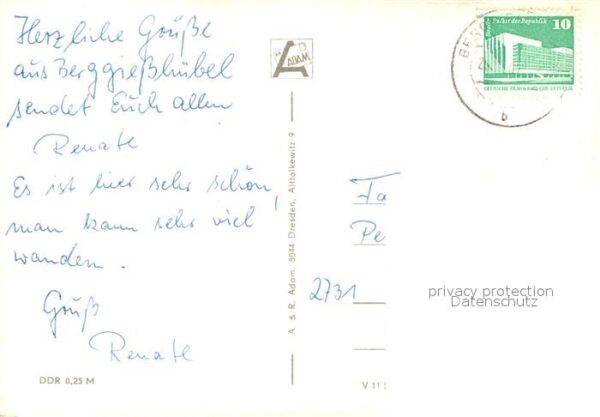 Herzliche Grüße
aus Berggießhübel
sendet Euch allen
Renate
Es ist hier sehr schön,
man kann sehr viel
wandern.
Gruß
Renate
DDR 0,25 M
ADAM
A. & R. Adam, 8044 Dresden, Altolkewitz 9
Berlin, Palast der Republik
10
DEUTSCHE DEMOKRATISCHE REPUBLIK
b
Fa
Pe
2731
privacy protection
Datenschutz
V 11